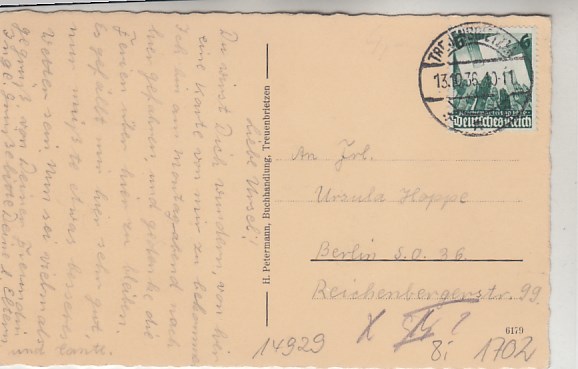 Liebe Ursel!
Du wirst Dich wundern, von hier
eine Karte von mir zu bekommen.
Ich bin am Montagabend nach
hier gefahren, und gedenke die
Ferien über hier zu bleiben.
Es gefällt mir hier sehr gut,
nur müßte etwas besseres
Wetter sein. Nun sei vielmals
gegrüßt von Deiner Freundin
Inge. Grüße bitte Deine l. Eltern
und Tante.
H. Petermann, Buchhandlung, Treuenbrietzen
TREUENBRIETZEN
13.10.36.10-11
6
Deutsches Reich
An Frl.
Ursula Hoppe
Berlin S.O. 36.
Reichenbergerstr. 99.
6179
14929
8i 1702